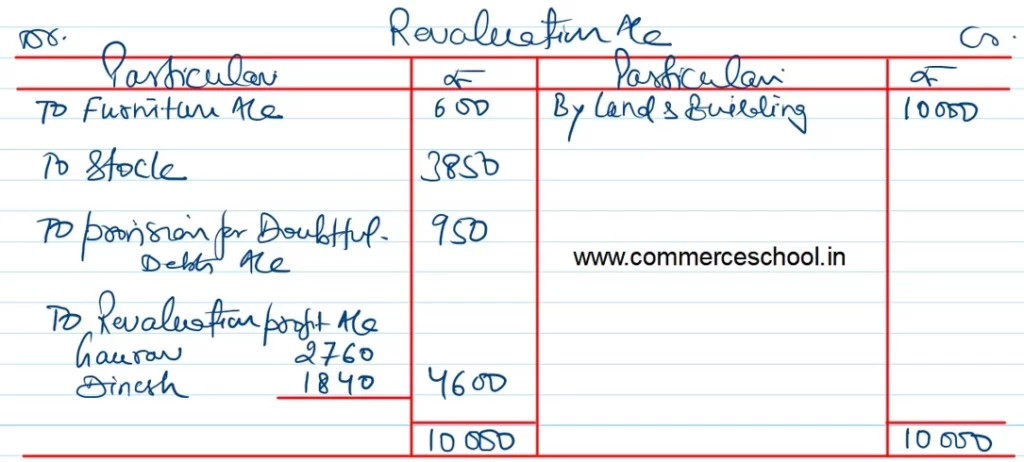 Dr. Revaluation A/c Cr.
Particulars ₹ Particulars ₹
To Furniture A/c 600 By Land & Building 10000
To Stock 3850
To provision for Doubtful 950
Debts A/c
www.commerceschool.in
To Revaluation profit A/c
Gaurav 2760
Dinesh 1840 4600
10000 10000